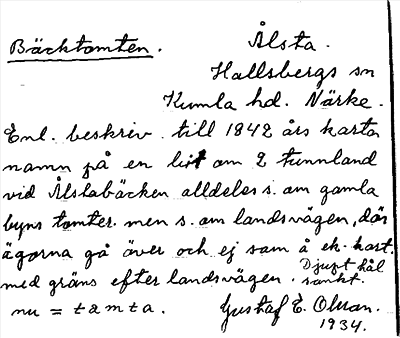 Bäcktomten.
Ålsta.
Hallsbergs sn
Kumla hd. Närke.
Enl. beskriv. till 1842 års karta
namn på en lit om 2 tunnland
vid Ålstabäcken alldeles s. om gamla
byns tomter. men s. om landsvägen, där
ägorna gå över och ej som å ek. kart.
med gräns efter landsvägen. Djupt hål
sankt.
nu = tamta. Gustaf E. Olsson.
1934.